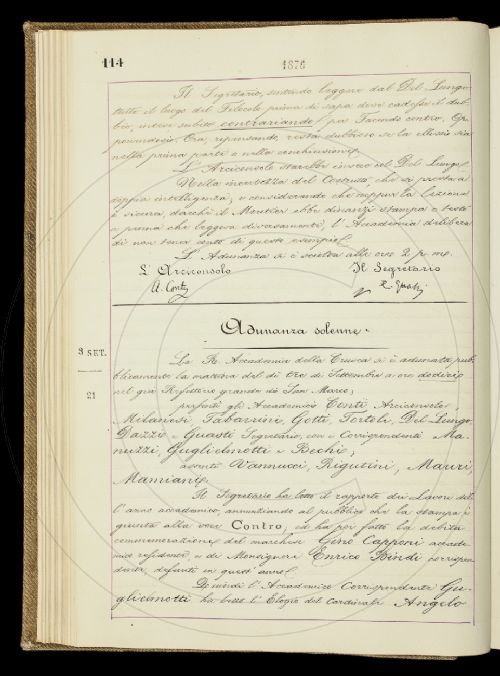 114
1876
Il Segretario, sentendo leggere dal Del Lungo
tutto il luogo del prima di sapa dove cadesse il dub-
bio, intese subito contrariando per Facendo contro. Og-
Ora, ripensando, resta dubbioso se la sia
nella prima parte o nella conchiusione.
L'Arciconsolo starebbe invece col Del Lungo.
Nella incertezza del Costrutto, che si presta a
doppia intelligenza; e considerando che neppur la lezione
è sicura, dacchè il ebbe dinanzi stampa e testo
a penna che leggeva diversamente, l'Accademia delibera
di non tener conto di questo esempio.
L'Adunanza si è sciolta alle ore 2 p. me.
L'Arciconsolo Il Segretario
A. Conti
Adunanza solenne.
3 SET.
21
La R. Accademia della Crusca si è adunata pub-
blicamente la mattina del dì tre di Settembre a ore dodici
nel già Refettorio grande di San Marco;
presenti gli Accademici Conti Arciconsolo,
Milanesi, Tabarrini, Gotti, Tortoli, Del Lungo,
Dazzi e Guasti Segretario, con i Corrispondenti Ma-
nuzzi, Guglielmotti e Bechi;
assenti Vannucci, Rigutini, Mauri,
Mamiani.
Il Segretario ha letto il rapporto dei Lavori del-
l'anno accademico, annunziando al pubblico che la stampa è
giunta alla voce Contro; ed ha poi fatto la debita
commemorazione del marchese Gino Capponi accade-
mico residente, e di Monsignor Enrico Bindi corrispon-
dente, defunti in quest'anno.
Quindi l'Accademico Corrispondente Gu-
glielmotti ha letto l'Elogio del Cardinale Angelo